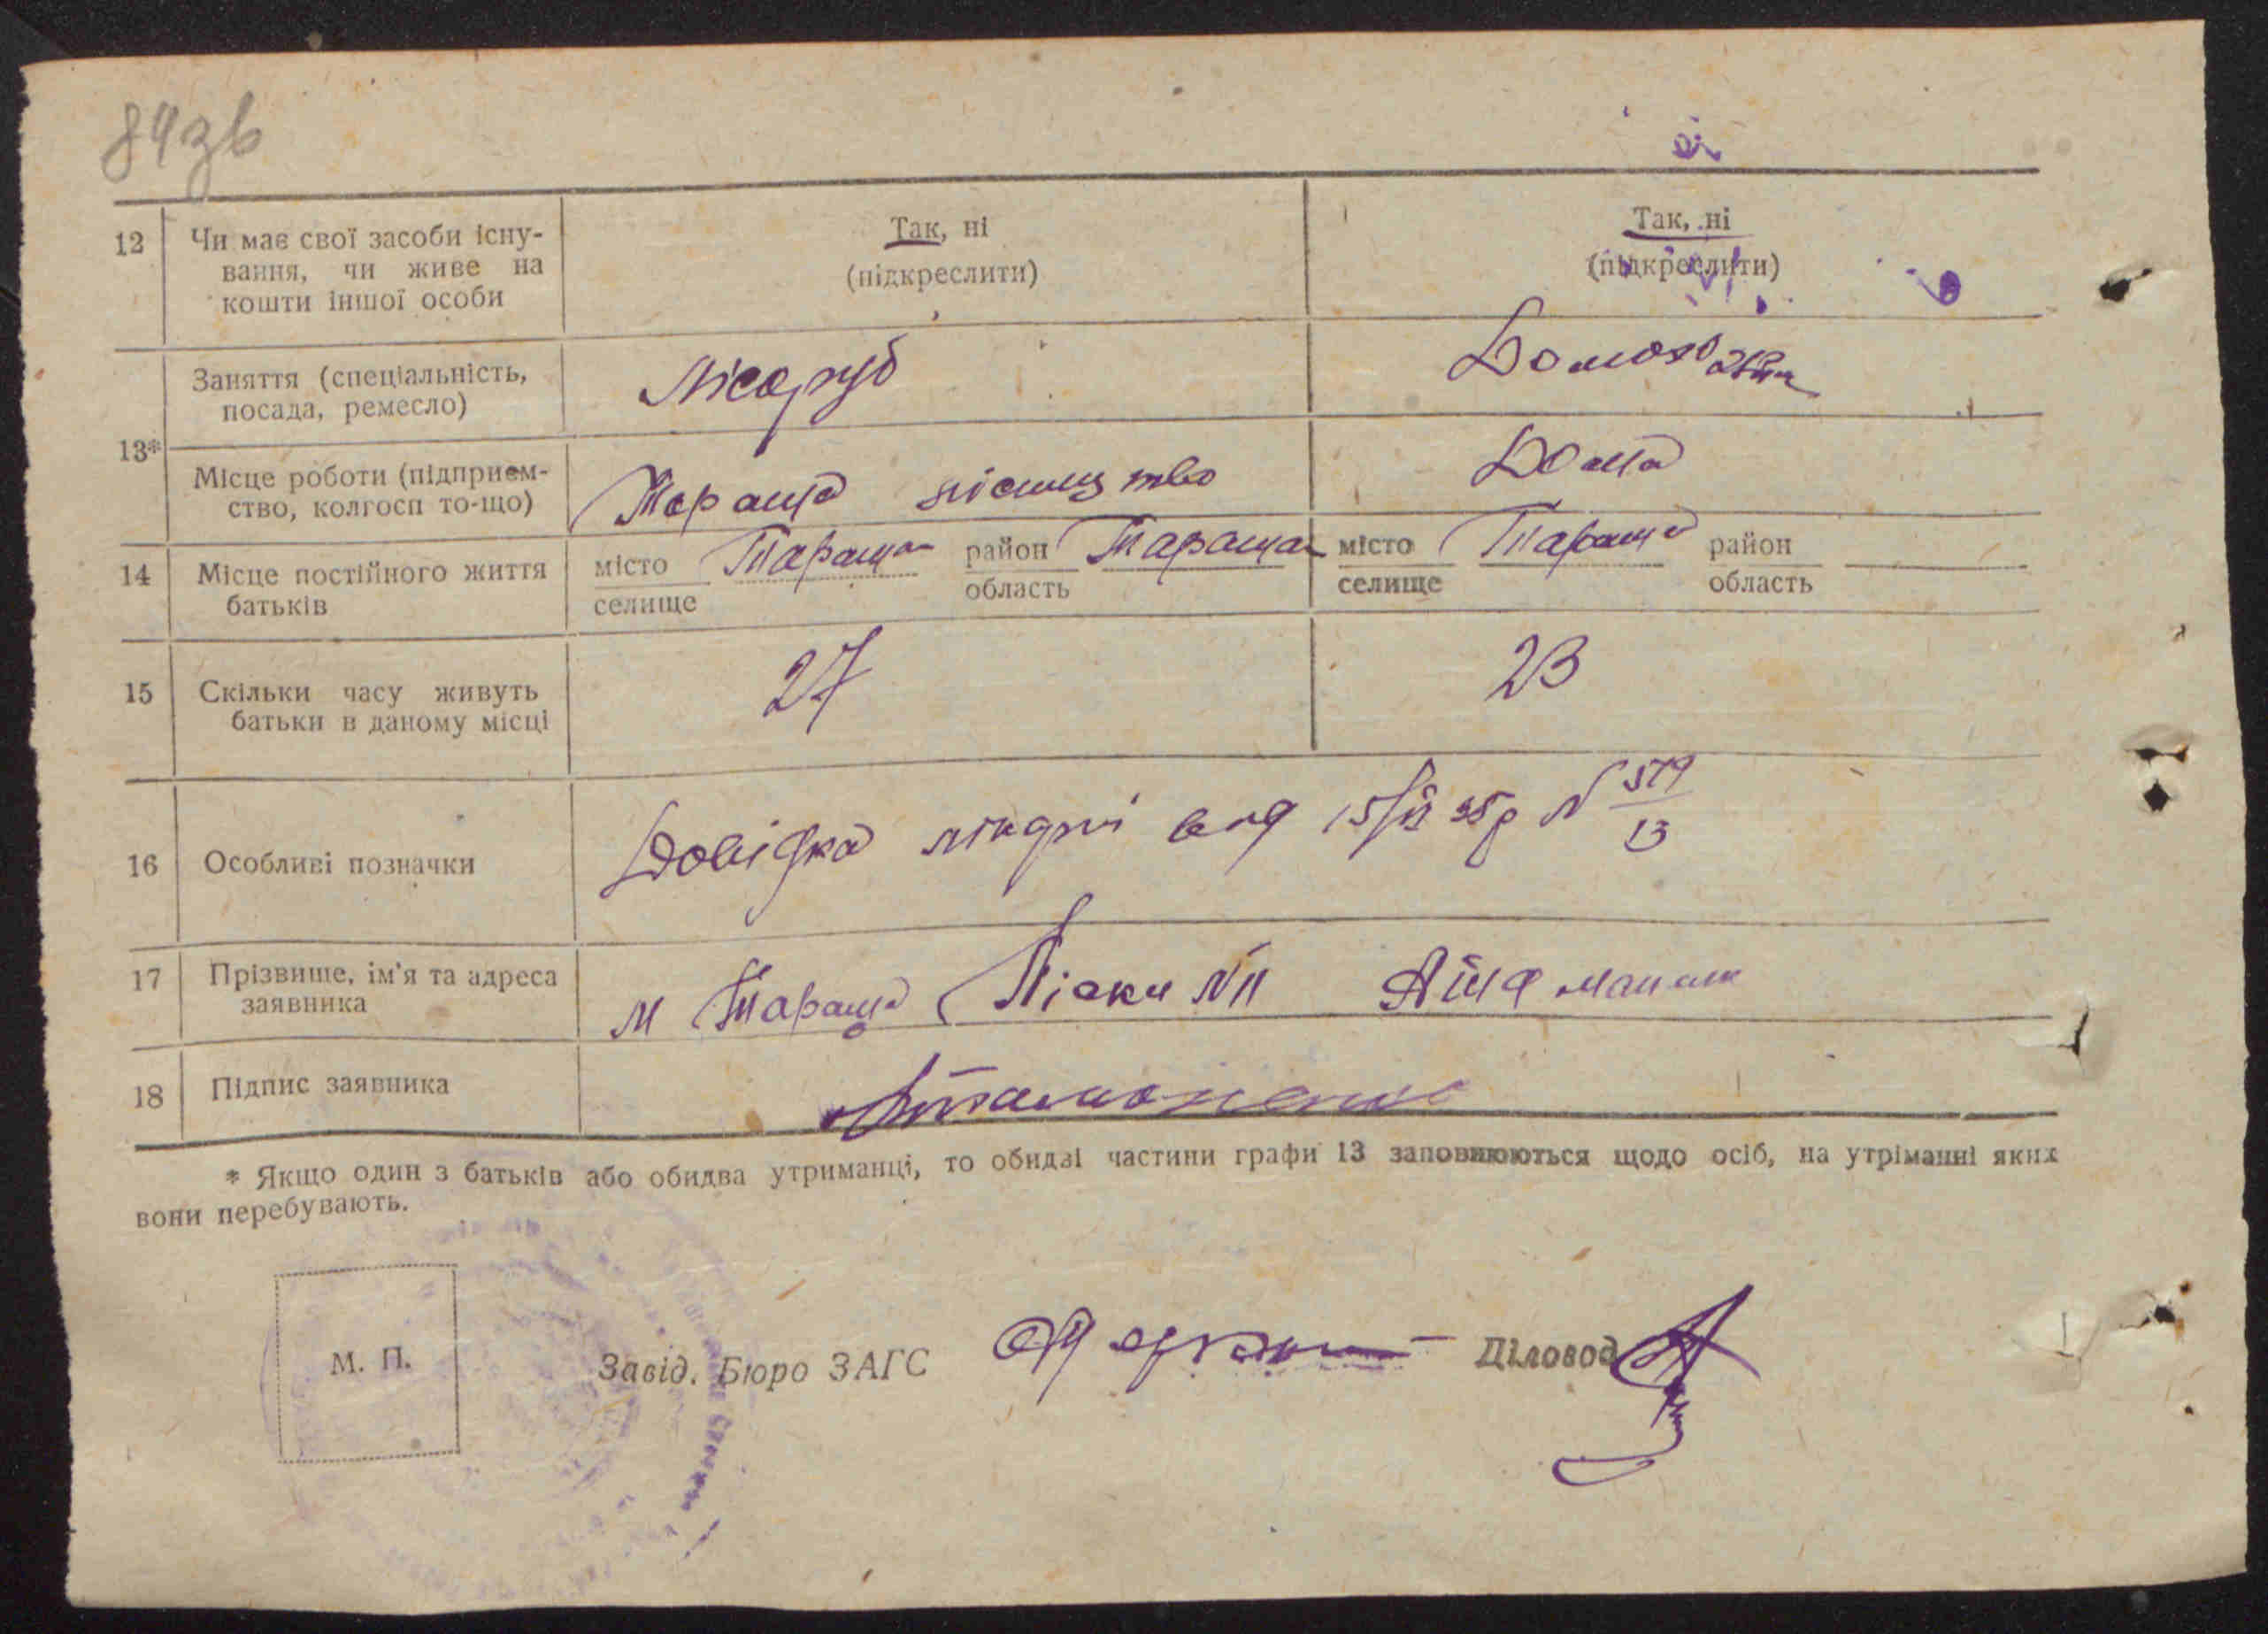 84зв
12 Чи має свої засоби існу- Так, ні Так, ні
вання, чи живе на (підкреслити) (підкреслити)
кошти іншої особи
Заняття (спеціальність, Лісоруб
посада, ремесло)
13*
Місце роботи (підприєм- Тараща лісництво Дома
ство, колгосп то-що)
14 Місце постійного життя місто Тараща район Тараща місто Тараща район
батьків селище область селище область
15 Скільки часу живуть 27 23
батьки в даному місці
16 Особливі позначки Довідка лікарні від 35р N 579/13
17 Прізвище, ім'я та адреса м Тараща Піски
заявника
18 Підпис заявника
* Якщо один з батьків або обидва утриманці, то обидві частини графи 13 заповнюються щодо осіб, на утріманні яких
вони перебувають.
М. П. Завід. Бюро ЗАГС Діловод